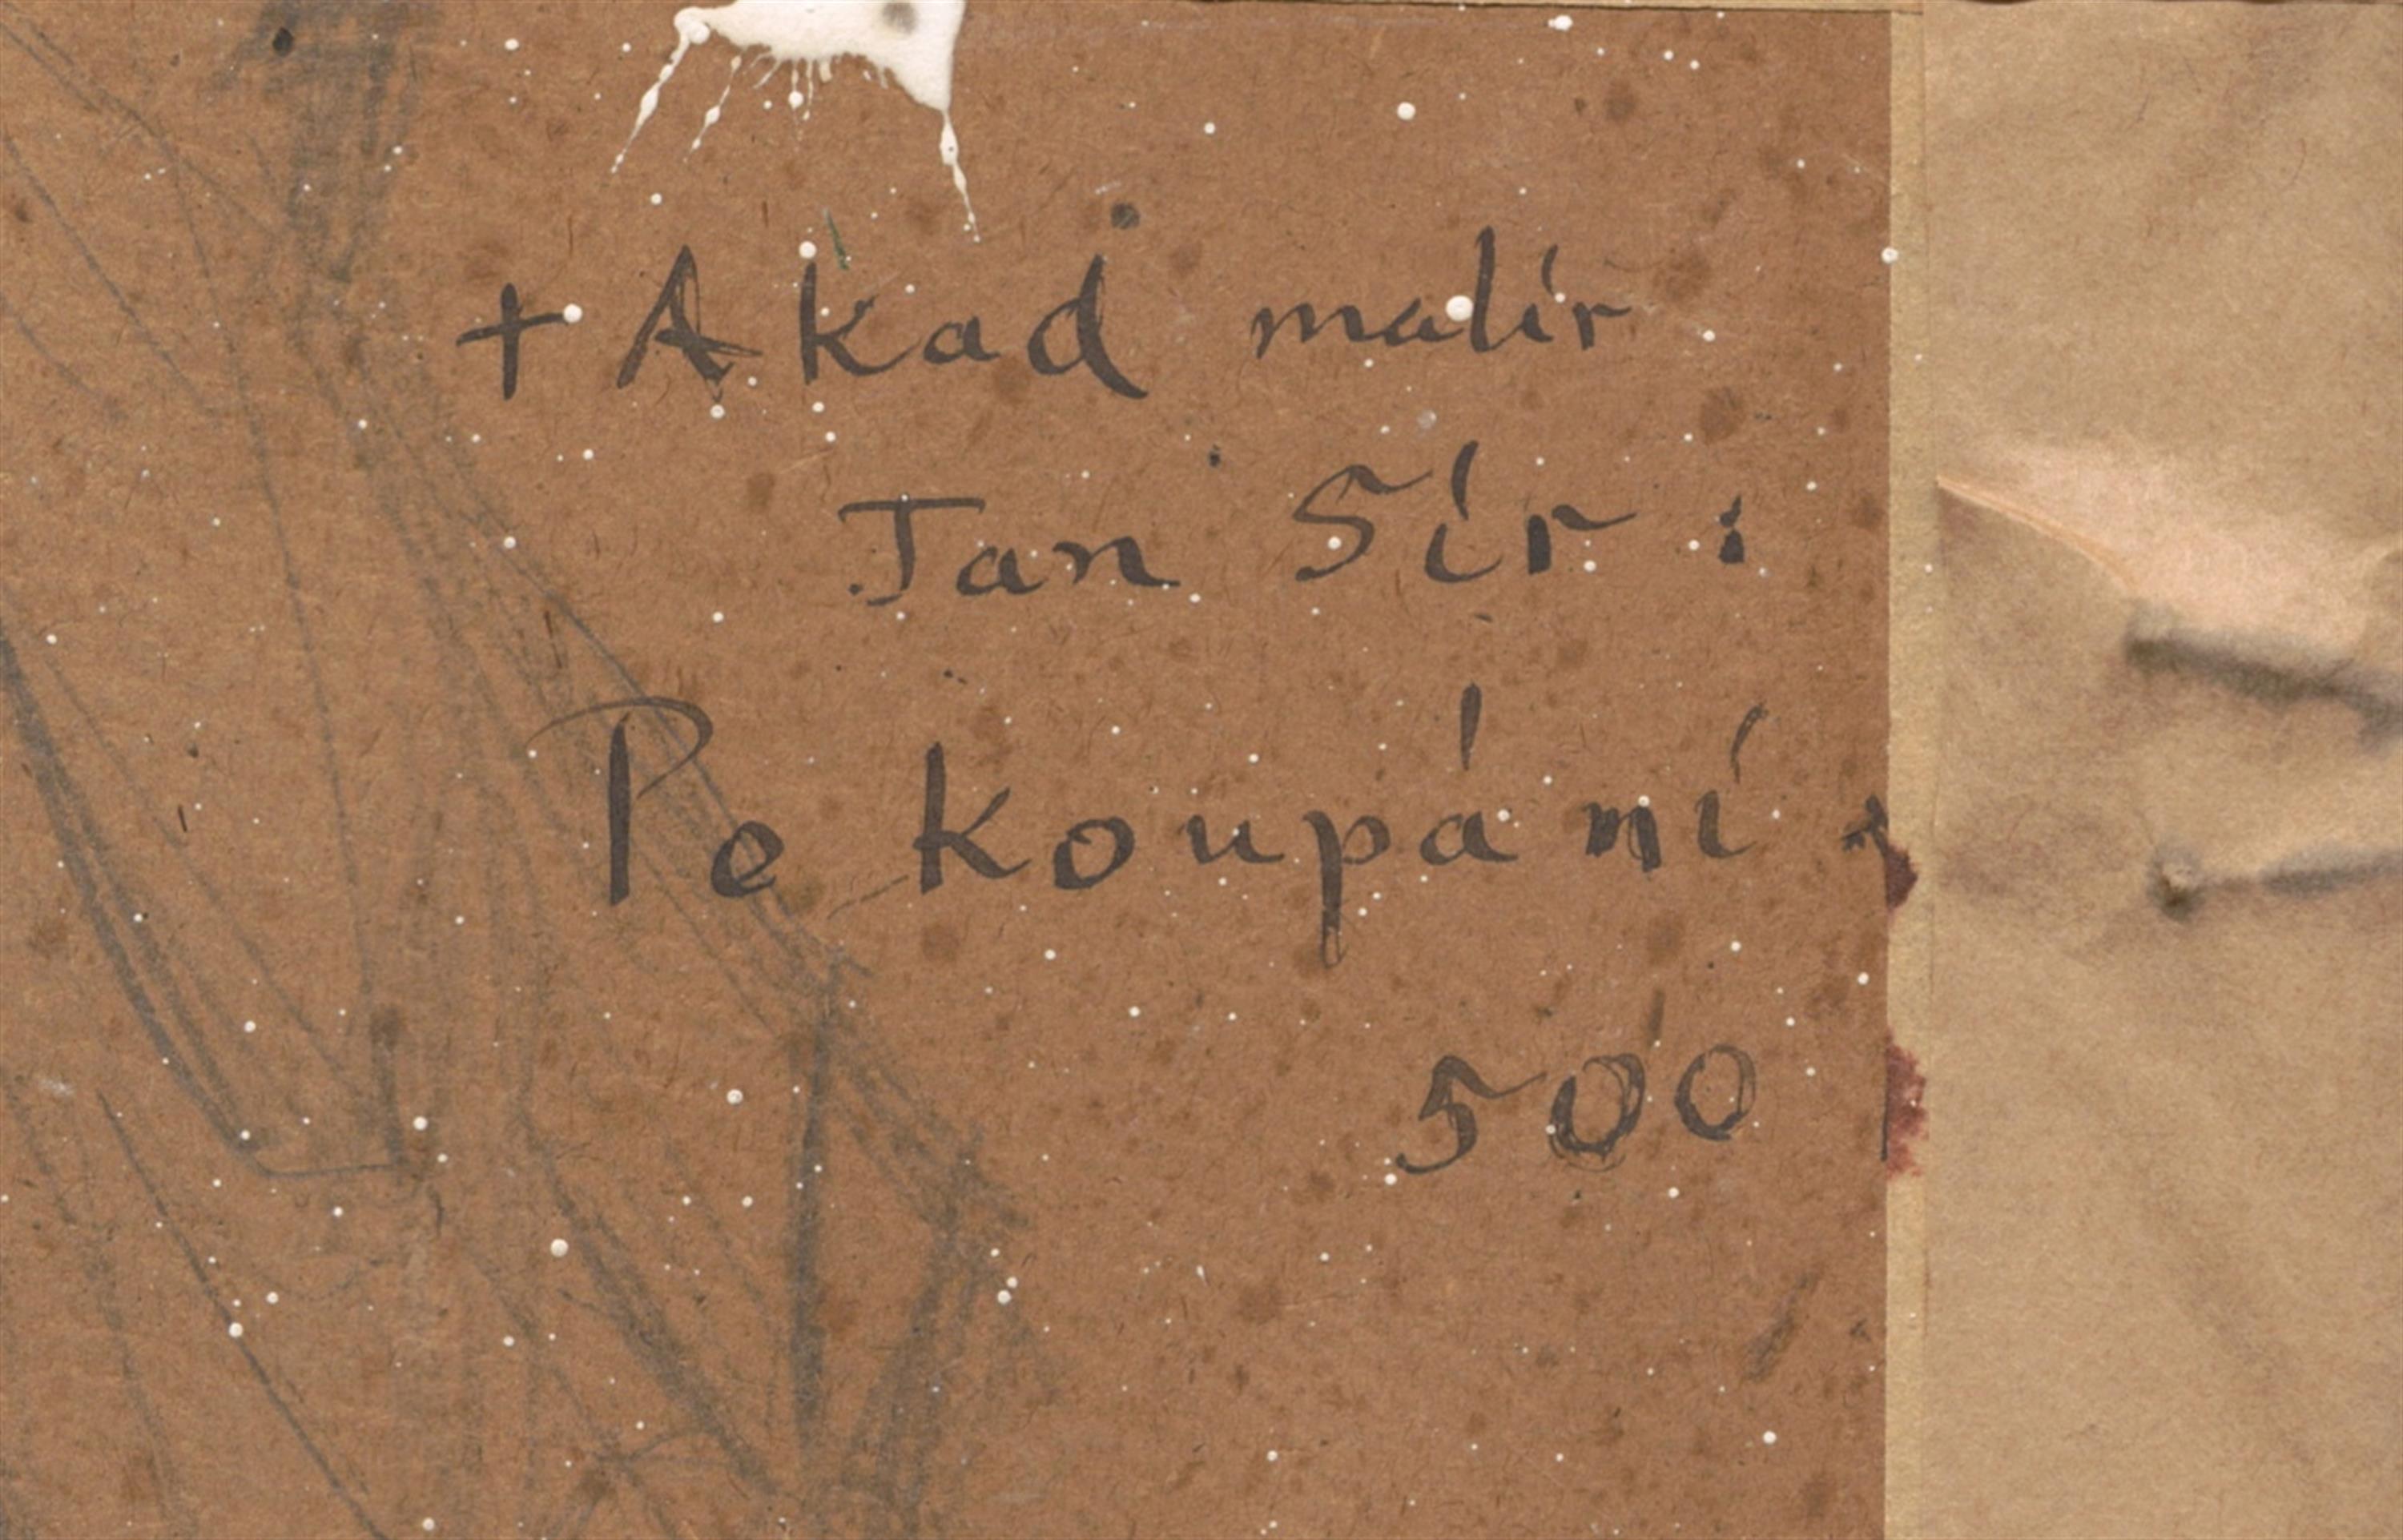 + Akad malír
Jan Sír :
Po koupání
500